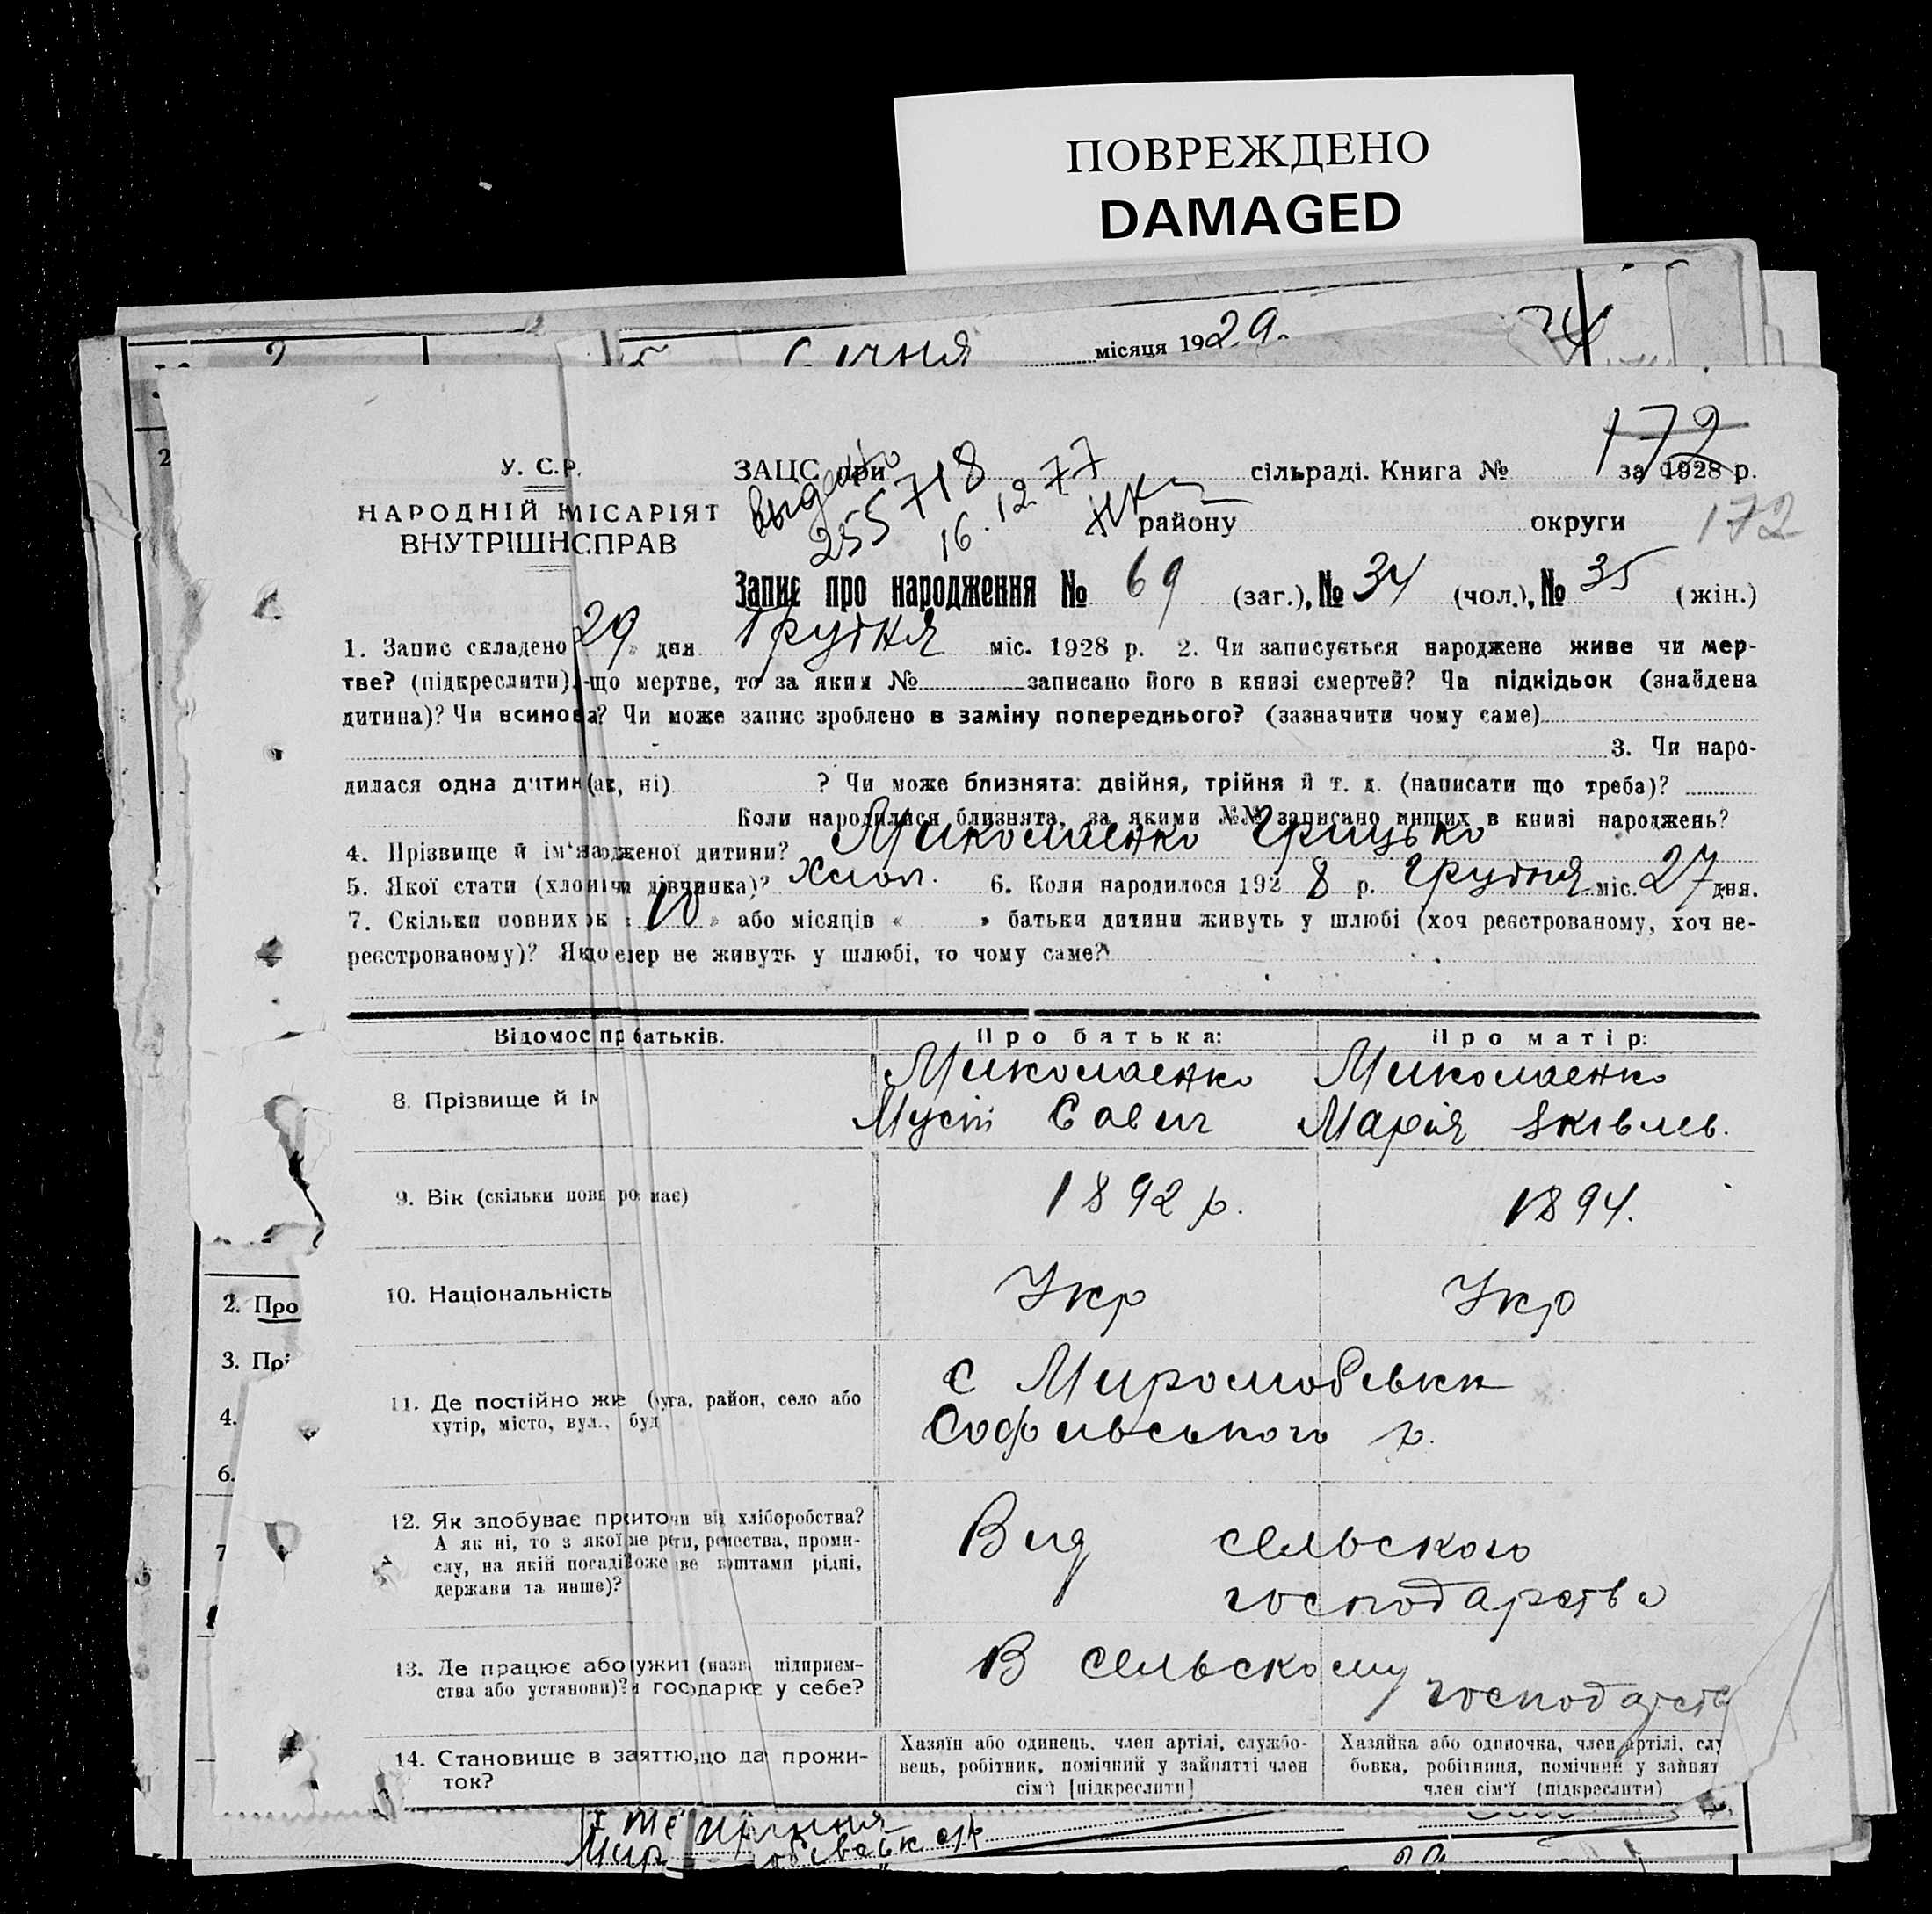 ПОВРЕЖДЕНО
DAMAGED
місяця 1929.
172
У. С.Р.
ЗАЦС при сільраді. Книга № за 1928 р.
НАРОДНІЙ МІСАРІЯТ
ВНУТРІШН СПРАВ
выдано
255718
16.12.77
району округи 172
Запис про народження № 69 (заг.), № 34 (чол.), № 35 (жін.)
1. Запис складено 29 » дня Грудня міс. 1928 р. 2. Чи записується народжене живе чи мер-
тве? (підкреслити). -що мертве, то за яким № записано його в книзі смертей? Чи підкідьок (знайдена
дитина)? Чи всинова? Чи може запис зроблено в заміну попереднього? (зазначити чому саме)
3. Чи наро-
дилася одна дитин (ак, ні) ? Чи може близнята: двійня, трійня й т. д. (написати що треба)?
Коли народилися близнята, за якими №№ записано инших в книзі народжень?
4. Прізвище й ім'я народженої дитини? Миколаенко Грицько
5. Якої стати (хлопчи дівчинка)? Хлоп. 6. Коли народилося 1928 р. Грудня міс. 27 дня.
7. Скільки повних рок « 10 » або місяців « » батьки дитини живуть у шлюбі (хоч реєстрованому, хоч не-
реєстрованому)? Якщо епер не живуть у шлюбі, то чому саме?
Відомос пр батьків. Про батька: Про матір:
8. Прізвище й ім Миколаенко Мусій Савич Миколаенко Марія Яківлев.
9. Вік (скільки повн рок має) 1892 р. 1894.
10. Національність Укр Укр
11. Де постійно жи (уга, район, село або
хутір, місто, вул., буд
с Миролюбівки
Софиівського р.
12. Як здобуває пр иточи від хліборобства?
А як ні, то з якої ме ра ти, ремества, проми-
слу, на якій посаді може ве коштами рідні,
держави та инше)?
Вид сельского
господарства
13. Де працює або ужит (назв підприєм-
ства або установи)? и господарює у себе?
В сельскому
господарств
14. Становище в заяттю, що да прожи-
ток?
Хазяїн або одинець, член артілі, службо-
вець, робітник, помічний у зайнятті член
сім'ї [підкреслити]
Хазяйка або одиночка, член артілі, слу
бовка, робітниця, помічний у зайнят
член сім'ї (підкреслити)
2. Про
3. Прі
4.
6.
7